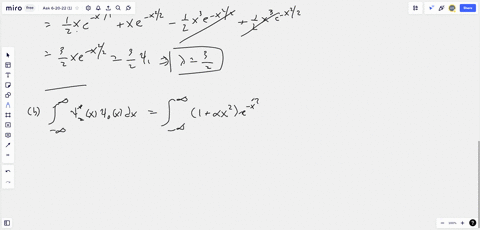 miro free Ask 6-20-22 (1) Share
= 1/2 x e^{-x²/2} + x e^{-x²/2} - 1/2 x³ e^{-x²/2} + 1/2 x³ e^{-x²/2}
= 3/2 x e^{-x²/2} = 3/2 ψ₁ ⇒ λ = 3/2
(b) ∫_{-∞}^{∞} ψ₂*(x) ψ₀(x) dx = ∫_{-∞}^{∞} (1 + αx²) e^{-x²}